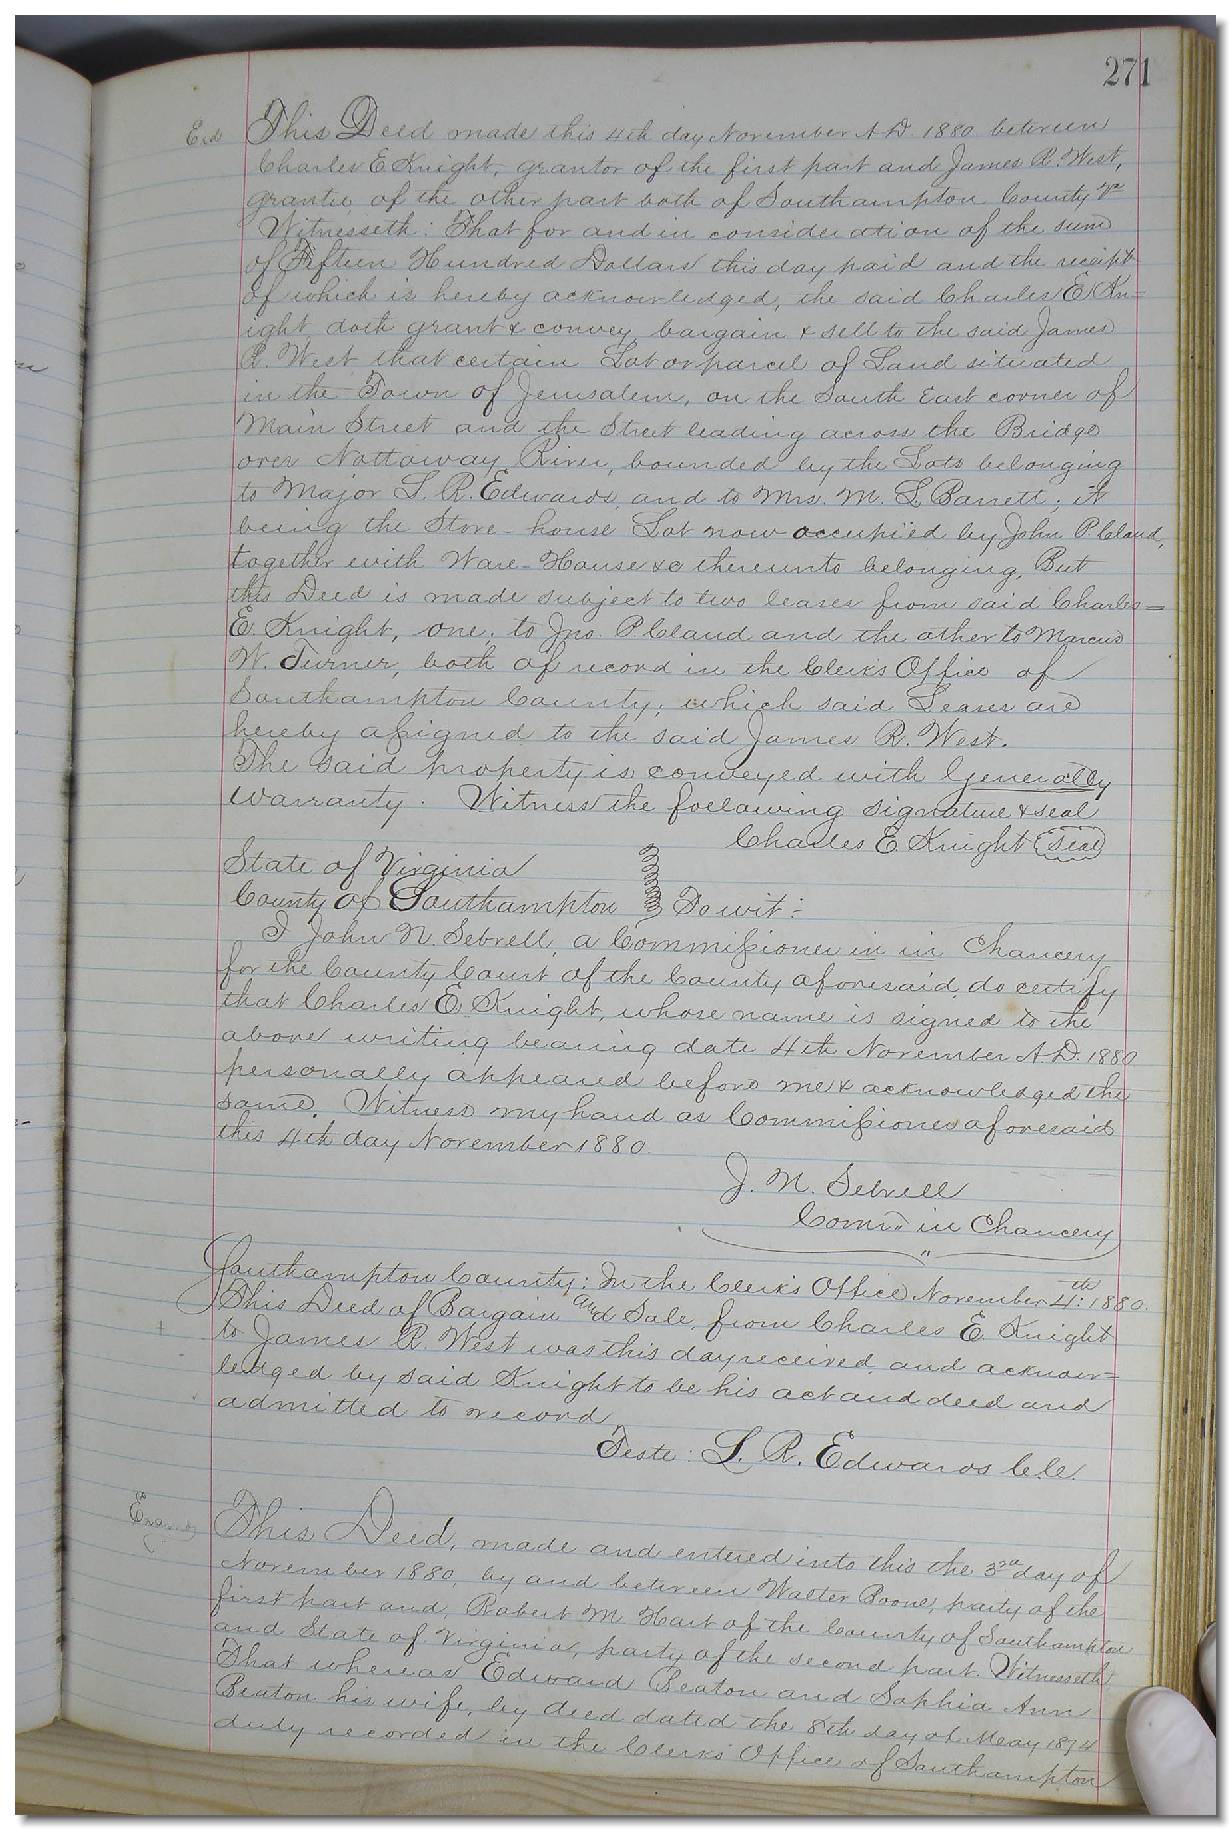 271
This Deed made this 4th day November A.D. 1880 between
Charles E Knight, grantor of the first part and James R. West,
grantee, of the other part both of Southampton County Va
Witnesseth: That for and in consideration of the sum
of Fifteen Hundred Dollars this day paid and the receipt
of which is hereby acknowledged, the said Charles E Kn=
ight, doth grant & convey, bargain & sell to the said James
R. West that certain Lot or parcel of Land situated
in the Town of Jerusalem, on the South East corner of
Main Street and the Street leading across the Bridge
over Nottoway River, bounded by the Lots belonging
to Major L. R. Edwards, and to Mrs. M. L. Barrett; it
being the Store-house Lot now occupied by John P Cland,
together with Ware-House &c thereunto belonging, But
this Deed is made subject to two leases from said Charles=
E. Knight, one, to Jno. P Cland and the other to Marcus
W. Turner, both of record in the Clerk's Office of
Southampton County; which said Leases are
hereby assigned to the said James R. West.
The said property is conveyed with Generally
warranty. Witness the following signature & seal
Charles E Knight seal
State of Virginia
County of Southampton To wit:-
I John N. Sebrell, a Commissioner in in Chancery
for the County Court of the County aforesaid, do certify
that Charles E. Knight, whose name is signed to the
above writing bearing date 4th November A.D. 1880
personally appeared before me & acknowledged the
same. Witness my hand as Commissioner aforesaid
this 4th day November 1880.
J. N. Sebrell
Comr. in Chancery
Southampton County: In the Clerk's Office November 4th: 1880.
This Deed of Bargain and Sale, from Charles E. Knight
to James R. West was this day received, and acknow=
ledged by said Knight to be his act and deed and
admitted to record
Teste: L. R. Edwards C.C.
This Deed, made and entered into this the 3rd day of
November 1880, by and between Walter Boone, party of the
first part and, Robert M Hart of the County of Southampton
and State of Virginia, party of the second part. Witnesseth
That whereas Edward Beaton and Sophia Ann
Beaton his wife, by deed dated the 8th day of May 1874
duly recorded in the Clerk's Office of Southampton